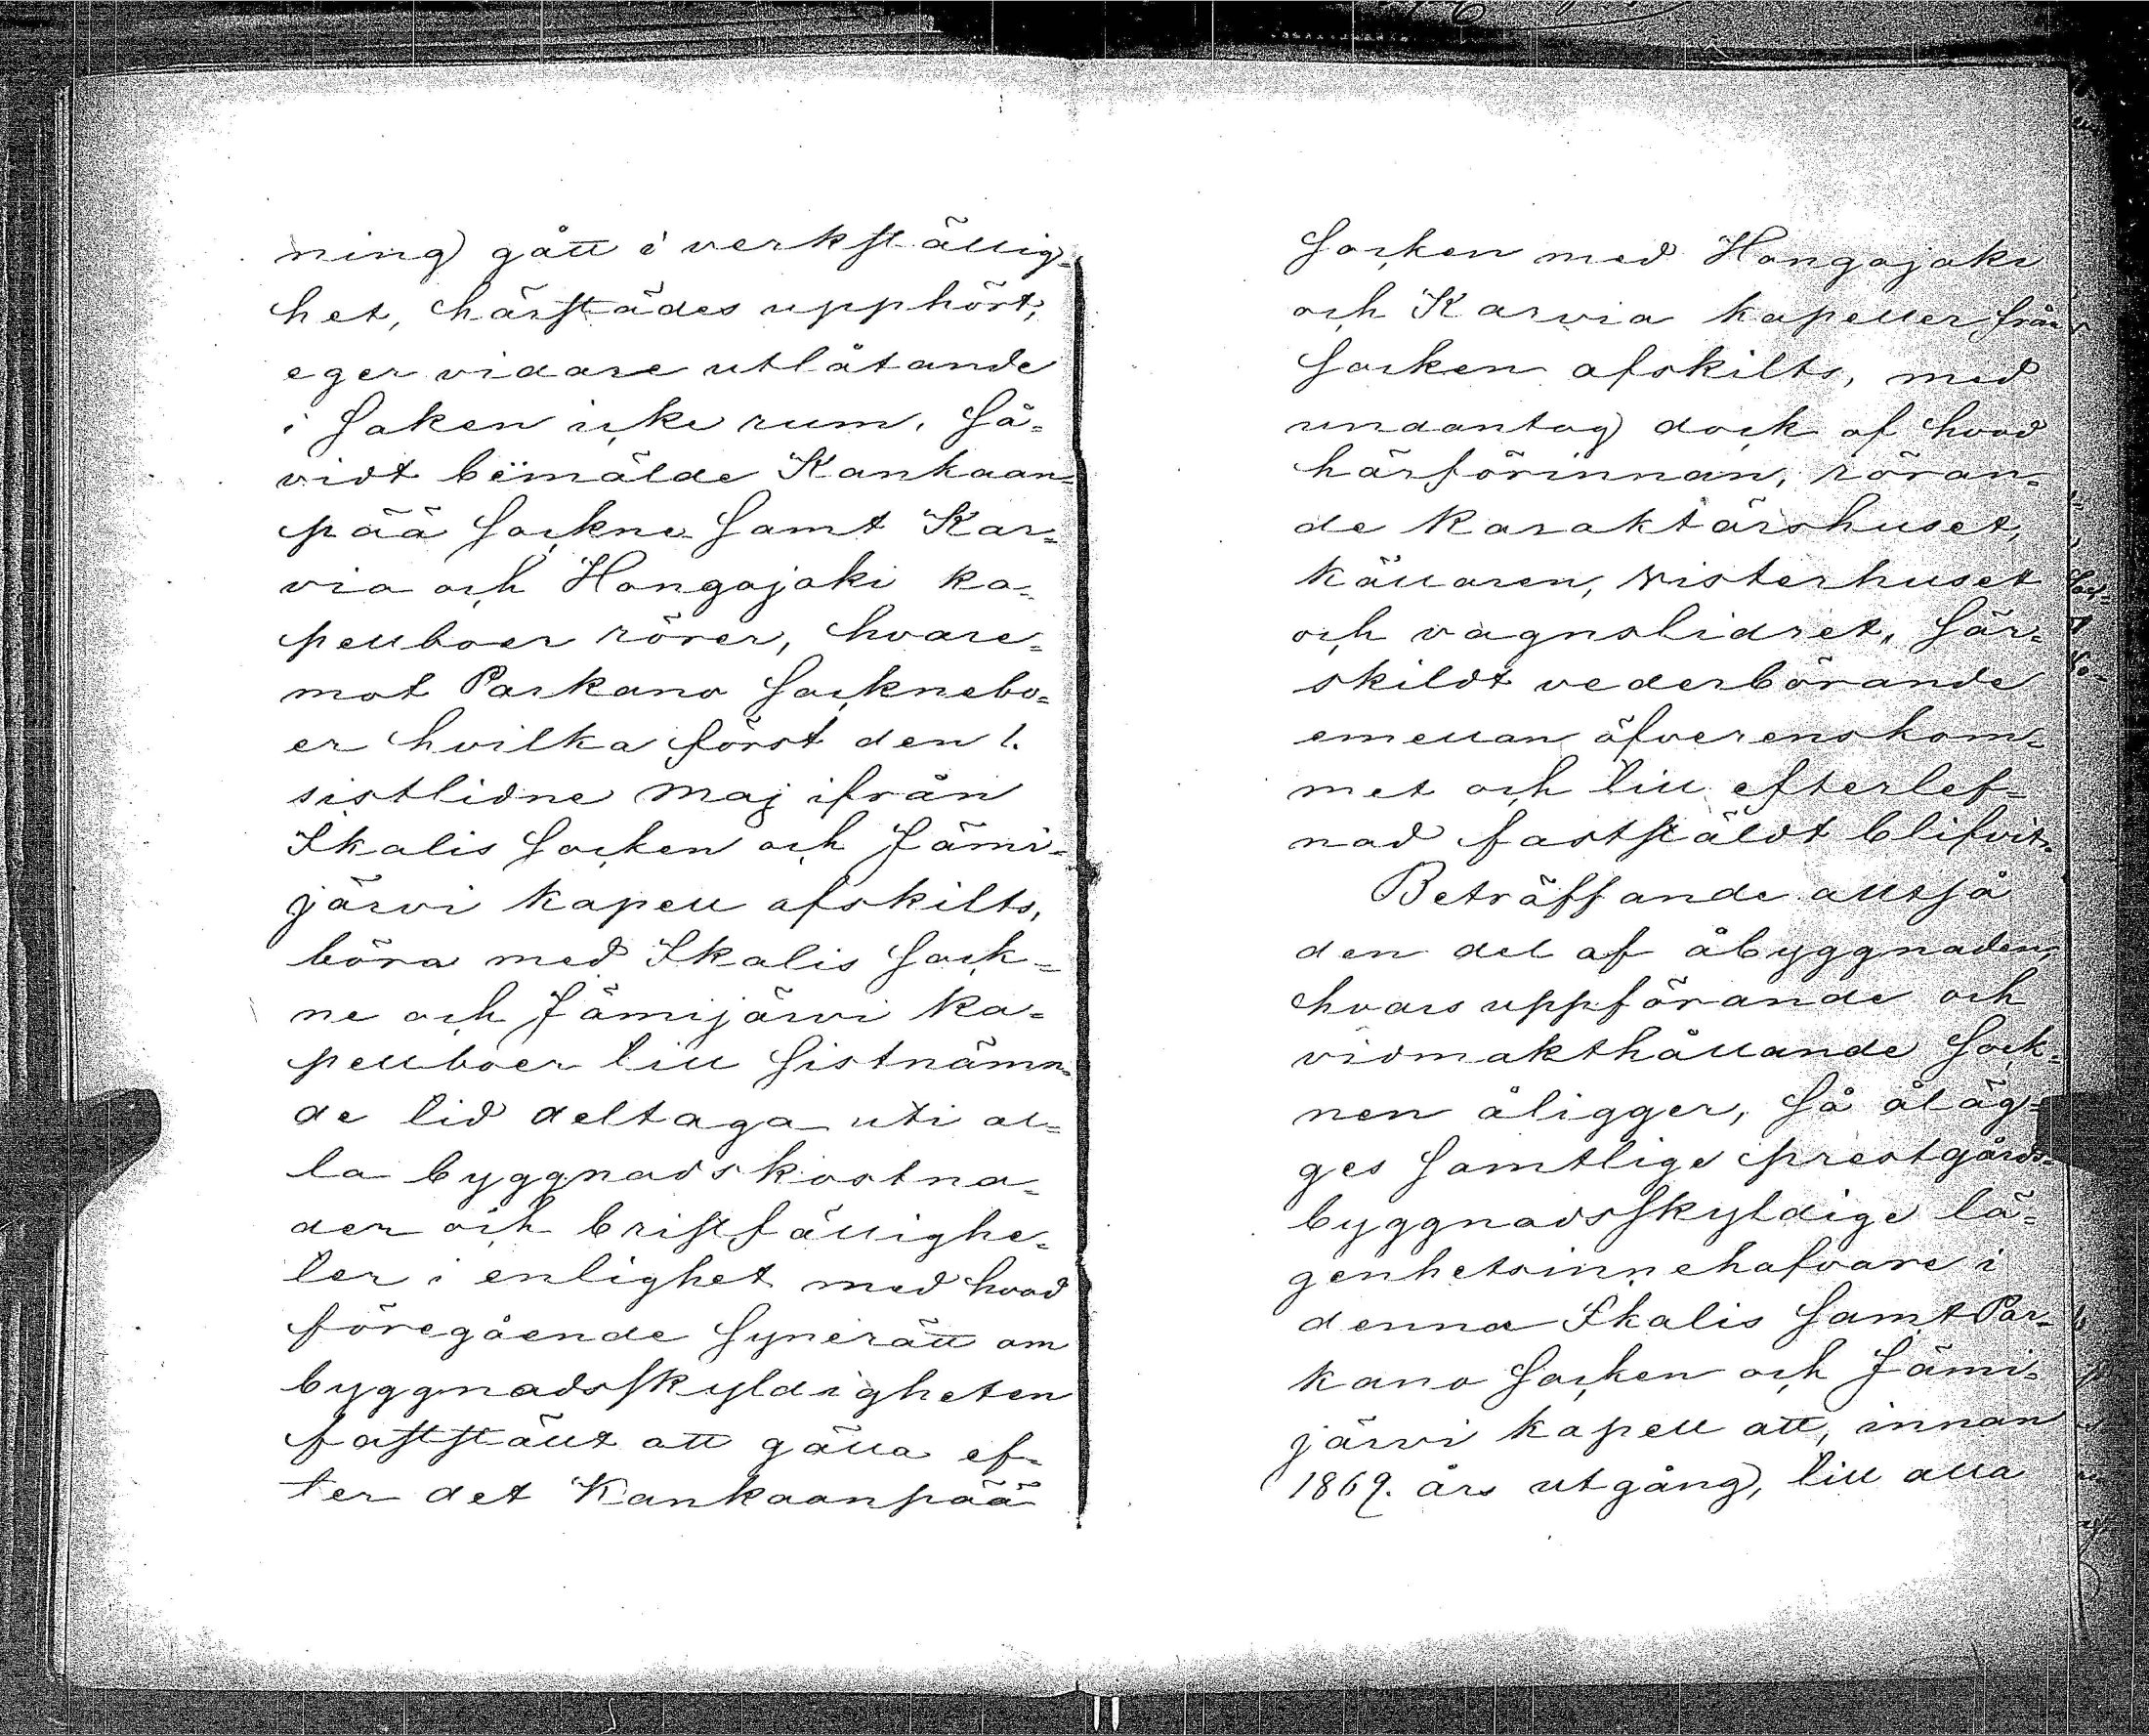 ning) gått i verkställig-
het, härstädes upphört,
eger vidare utlåtande
i saken icke rum, så-
vidt bemälde Kankaan-
pää Sockne samt Kar-
via och Hongojoki ka-
pellboer rörer, hvare-
mot Parkano Socknebo-
er hvilka först den 1.
sistlidne Maj ifrån
Ikalis Socken och Jämi-
järvi kapell afskilts,
böra med Ikalis Sock-
ne och Jämijärvi ka-
pellboer till sistnämn-
de tid deltaga uti al-
la byggnadskostna-
der och bristfällighe-
ter i enlighet med hvad
föregående Synerätt om
byggnadsskyldigheten
fastställt att gälla ef-
ter det Kankaanpää
Socken med Hongojoki
och Karvia kapeller från
Socken afskilts, med
undantag dock af hvad
härförinnan, röran-
de karaktärshuset,
källaren, visterhuset
och vagnslidret, sär-
skildt vederbörande
emellan öfverenskom-
met och till efterlef-
nad fastställdt blifvit.
Beträffande alltså
den del af åbyggnaden,
hvars uppförande och
vidmakthållande Sock-
nen åligger, så åläg-
ges samtlige prestgårds-
byggnadsskyldige lä-
genhetsinnehafvare i
denna Ikalis samt Par-
kano Socken och Jämi-
järvi kapell att, innan
1869. års utgång, till alla